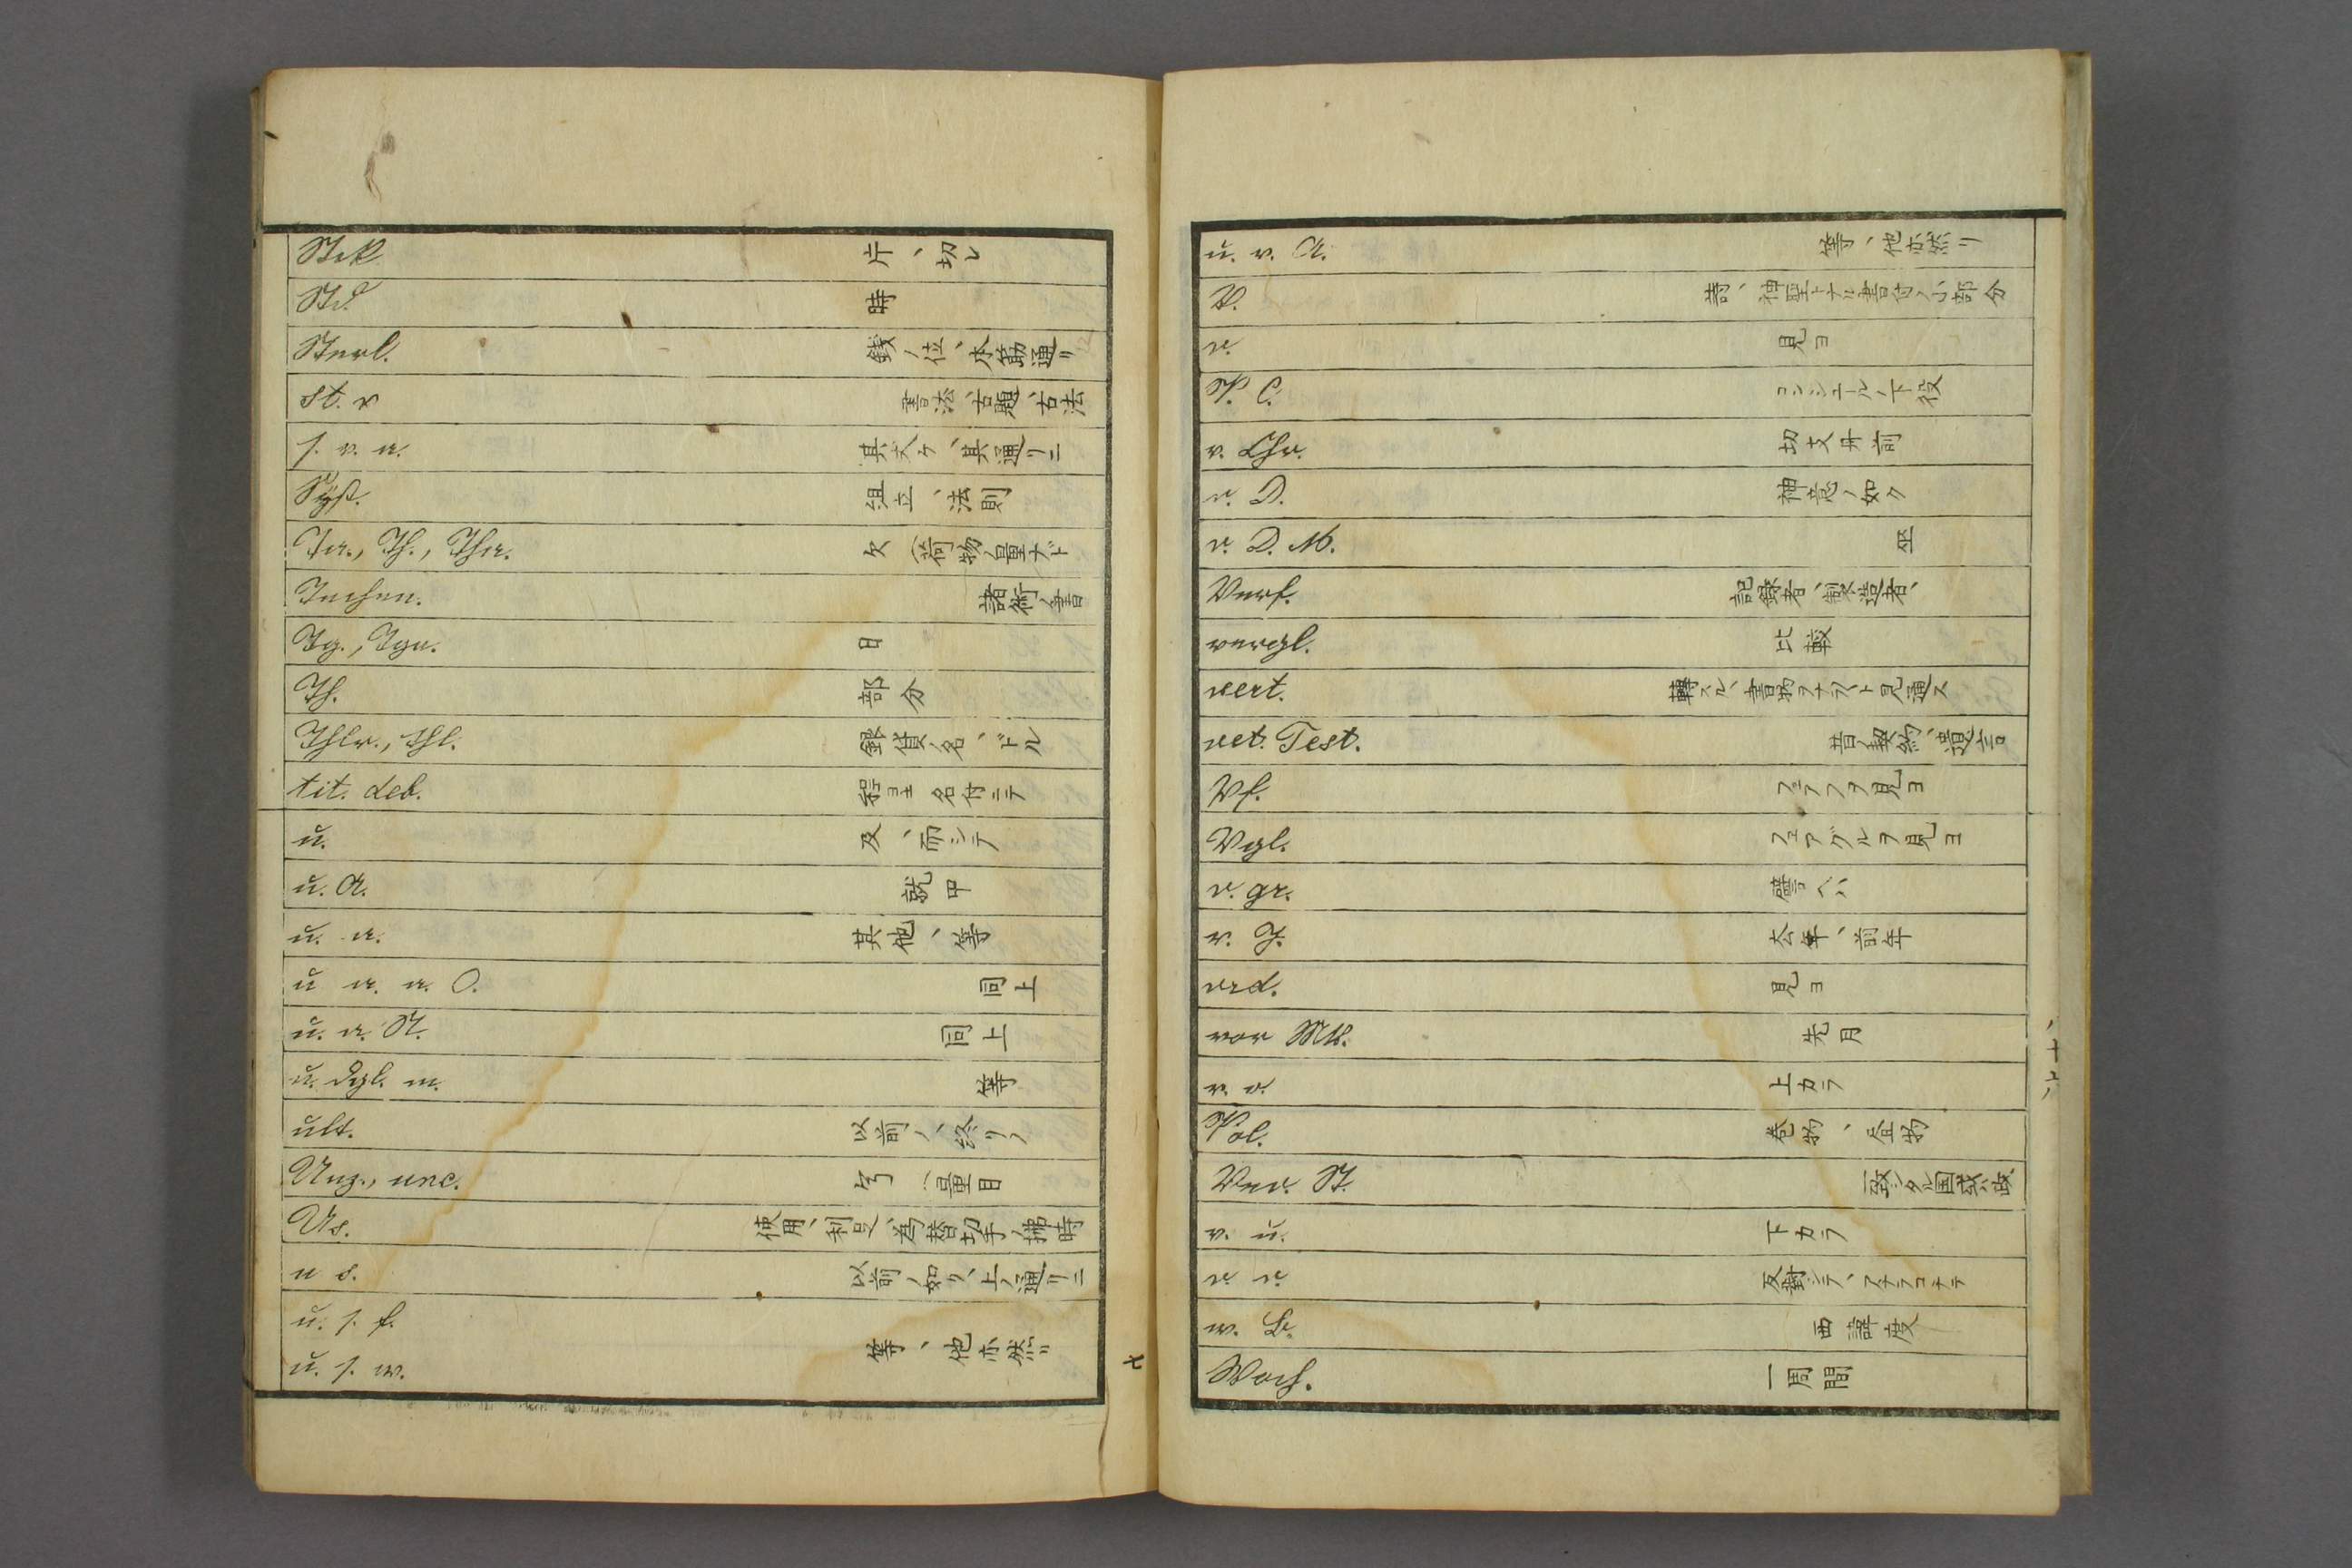 Stck 片、切レ
Std. 時
Sterl. 銭ノ位、本筋通リ
st. v 書法、古題、古法
s. v. a. 其丈ケ、其通リニ
Syst. 組立、法則
Ta., Th., Tha. 欠(荷物ノ量ナド
Techn. 諸術ノ書
Tg., Tge. 日
Th. 部分
Thlr., thl. 銀貨ノ名、ドル
tit. deb. 程ヨキ名付ニテ
ŭ. 及、而シテ
ŭ. A. 就中
ŭ. a. 其他、等
ŭ a. a. O. 同上
ŭ. a. St. 同上
ŭ. dgl. m. 等
ŭlt. 以前ノ、終リノ
Unz., unc. (量目
Us. 使用、利足、為替切手ノ拂時
u s. 以前ノ如ク、上ノ通リニ
ŭ. s. f.
ŭ. s. w. 等、他亦然リ
七
ŭ. v. A. 等、他亦然リ
V. 詩、神聖ナル書付ノ小部分
v. 見ヨ
V. C. コンシュールノ下役
v. Chr. 切支丹前
v. D. 神意ノ如ク
v. D. M. 坐
Verf. 記録者、製造者、
vergl. 比較
vert. 轉スル、書物ヲナラヘト見通ス
vet. Test. 昔ノ契約、遺言
Vf. フェラフヲ見ヨ
Vgl. フェアグルヲ見ヨ
v. gr. 譬ヘバ
v. J. 去年、前年
vid. 見ヨ
vor Mts. 先月
v. o. 上カラ
Vol. 巻物、疊物
Ver. St. 一致シタル国或ハ政
v. ŭ. 下カラ
v. v. 反對シテ、アチラコチラ
w. L. 西諱度
Woch. 一周間